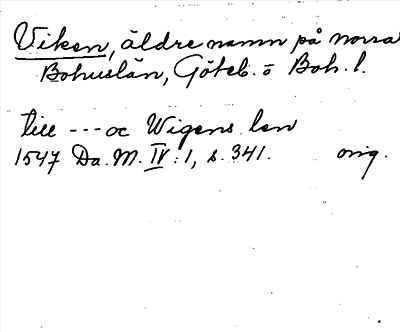 Viken, äldre namn på norra
Bohuslän, Göteb. o Boh. l.
till --- oc Wigens len
1547 Da. M. IV: 1, s. 341. orig.